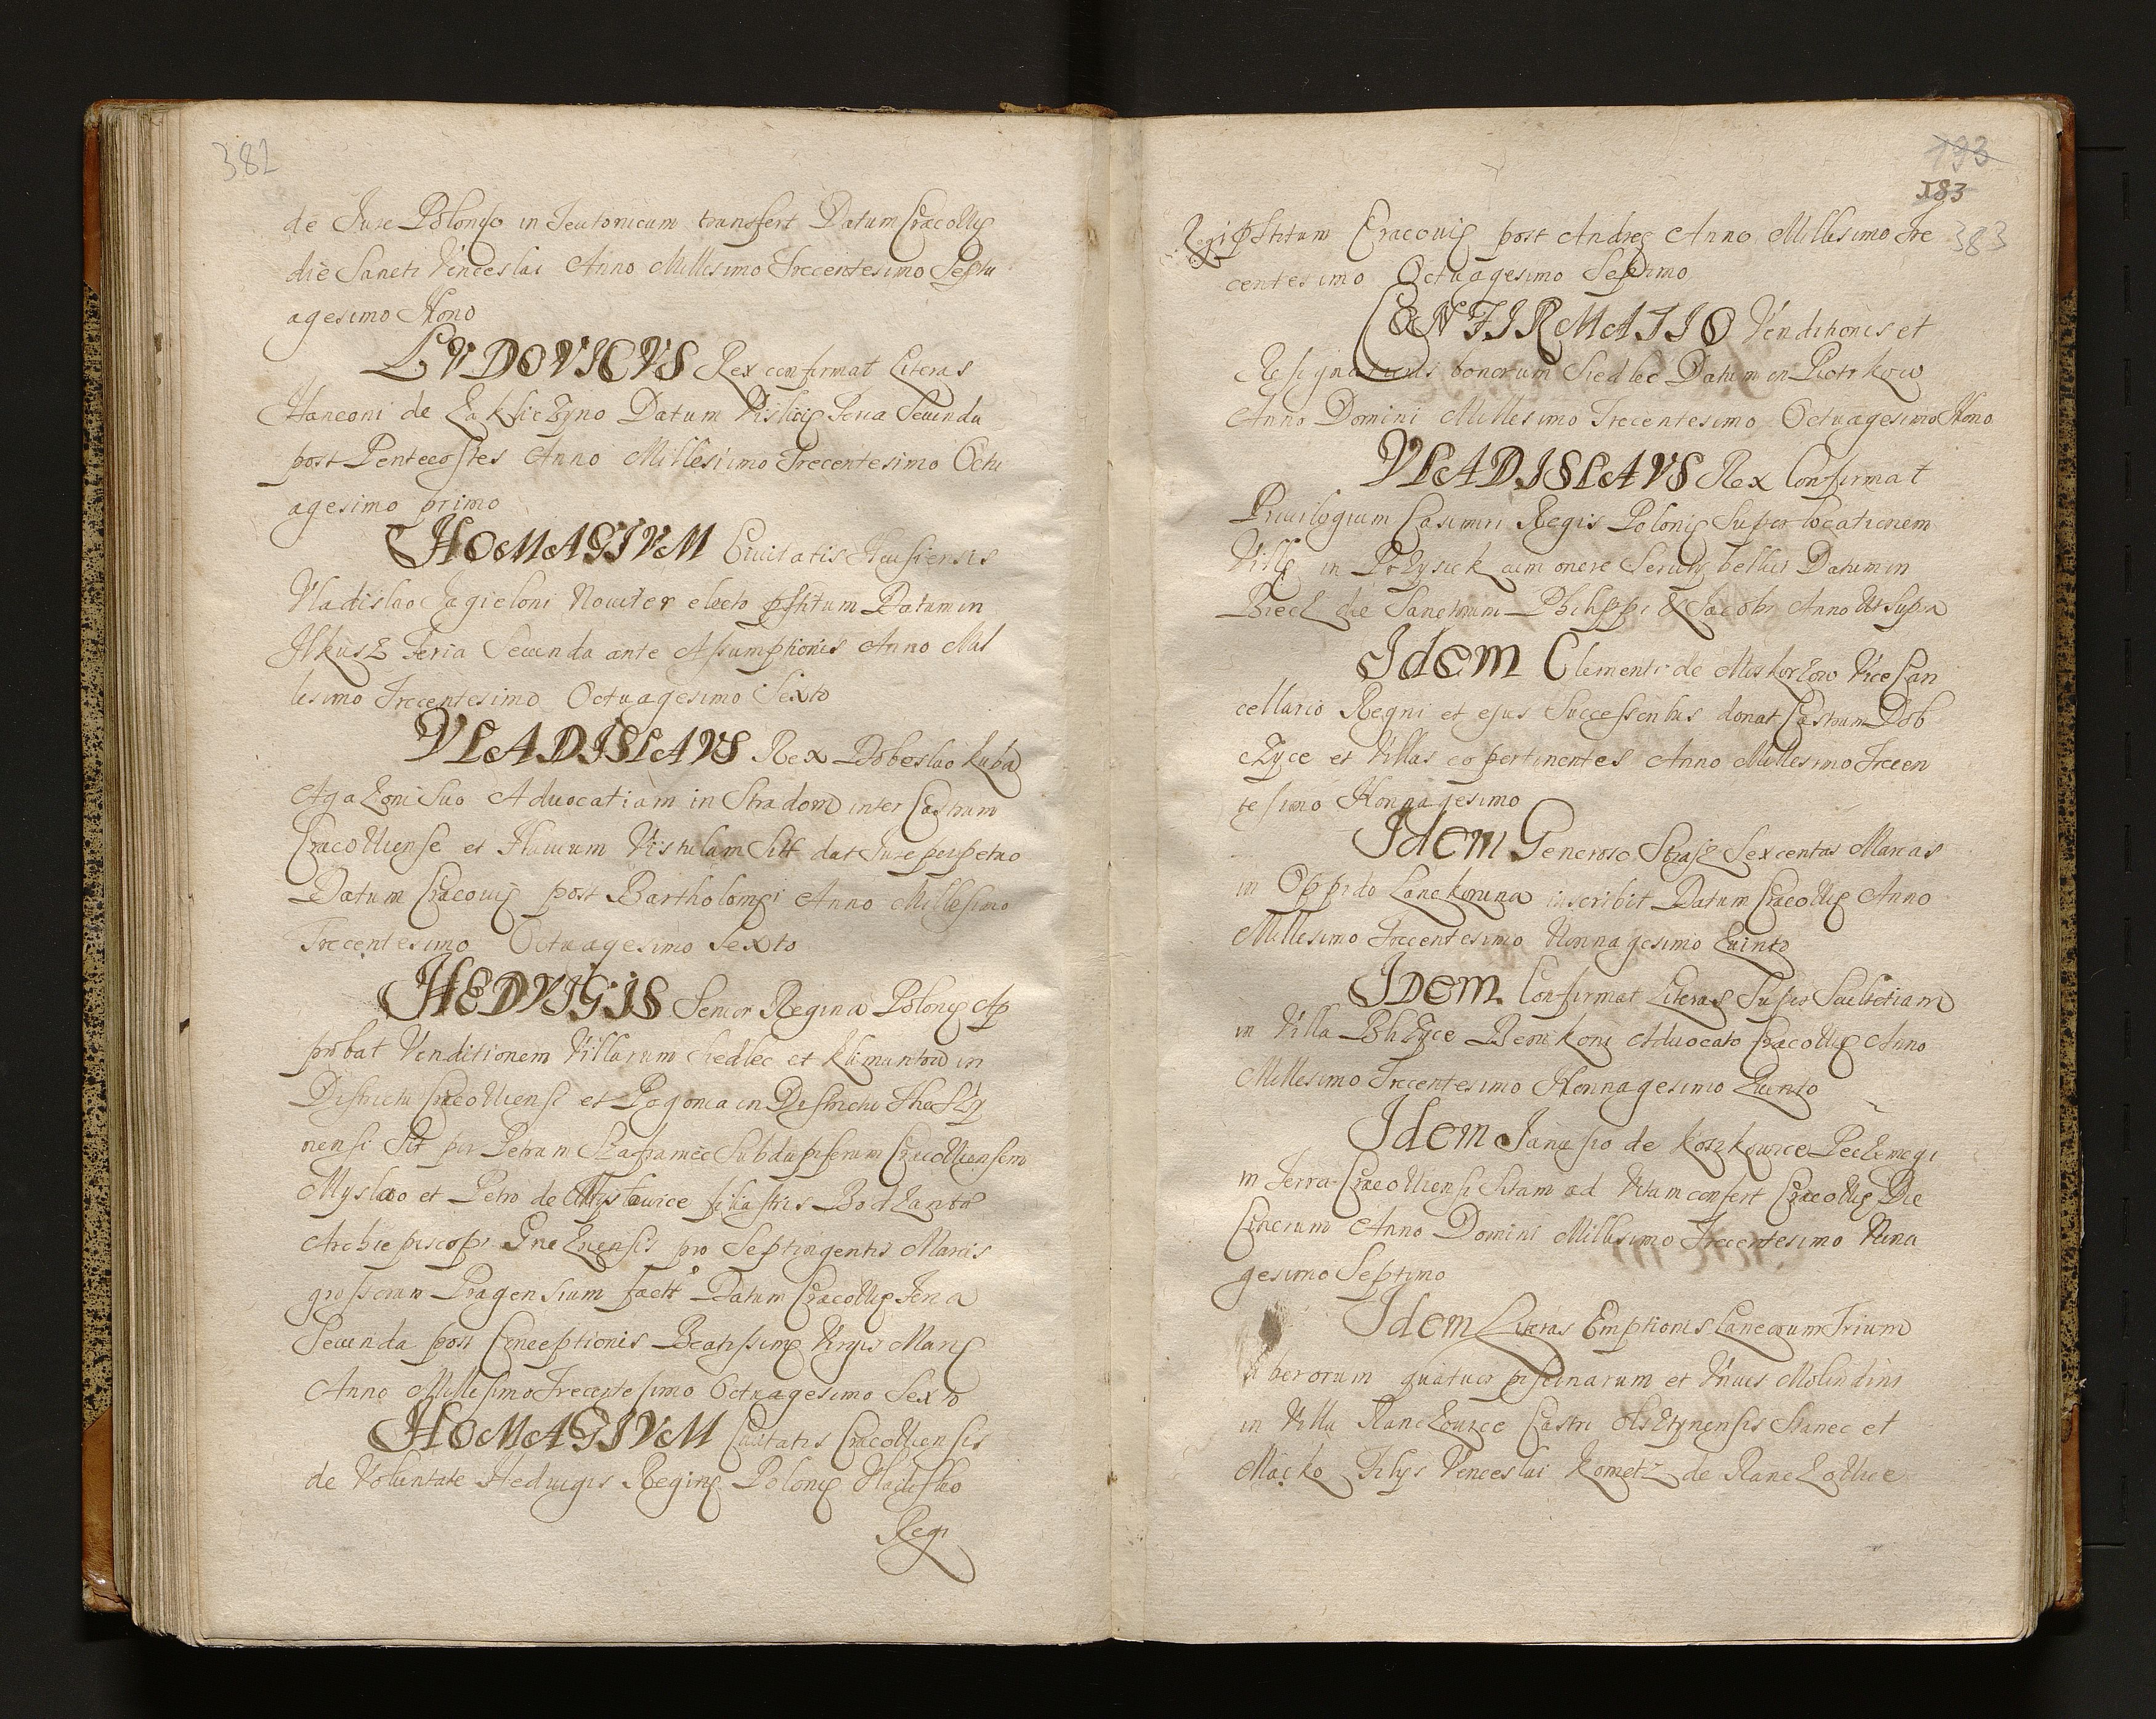 382
de Jure Polonico in Teutonicum transfert Datum Cracovię
die Sancti Venceslai Anno Millesimo Trecentesimo Septu
agesimo Nono
LVDOVICVS Rex confirmat Literas
Hanconi de Zakliczyno Datum Vislicię Feria Secunda
post Pentecostes Anno Millesimo Trecentesimo Octu
agesimo primo
HOMAGIVM Civitatis Ilcusiensis
Vladislao Jagieloni Noviter electo pstitum Datum in
Ilkusz Feria Secunda ante Assumptionis Anno Mil
lesimo Trecentesimo Octuagesimo Sexto
VLADISLAVS Rex Dobeslao Kuba
Agazoni Suo Advocatiam in Stradom inter Castrum
Cracoviense et Fluvium Vistulam Sitt dat Jure perpetuo
Datum Cracovię post Bartholomęi Anno Millesimo
Trecentesimo Octuagesimo Sexto
HEDVIGIS Senior Regina Polonię Ap
probat Venditionem Villarum Siedlec et Klimuntow in
Districtu Cracoviensi et Pogonia in Districtu
nensi Sit per Petrum Szafraniec Subdapiferum Cracoviensem
Myslao et Petro de Mysławice filiastris Bodzanta
Archiepiscopi Gneznensis pro Septingentis Marcis
grossorum Pragensium factt Datum Cracovię Feria
Secunda post Conceptionis Beatissimę Virgis Marię
Anno Millesimo Trecentesimo Octuagesimo Sexto
HOMAGIVM Civitatis Cracoviensis
de Voluntate Hedvigis Reginę Polonię Vladislao
Regi
193
183
383
Regi pstitum Cracovię post Andreę Anno Millesimo Tre
centesimo Octuagesimo Septimo
CONFIRMATIO Venditionis et
Resignationis bonorum Siedlec Datum in Piotrkow
Anno Domini Millesimo Trecentesimo Octuagesimo Nono
VLADISLAVS Rex Confirmat
Privilegium Casimiri Regis Polonię Super locationem
Villę in Przysiek cum onere Servitii bellici Datum in
Biecz die Sanctorum Philippi & Jacobi Anno Ut Supra
Idem Clementi de Moskorzow Vice Can
cellario Regni et ejus Successoribus donat Castrum Dob
czyce et Villas eo pertinentes Anno Millesimo Trecen
tesimo Nonnagesimo
Idem Generoso Strasz Sexcentas Marcas
in Oppido Lanckoruna inscribit Datum Cracovię Anno
Millesimo Trecentesimo Nonnagesimo Quinto
IDem Confirmat Literas Super Scultetiam
in Villa Advocato Cracovię Anno
Millesimo Trecentesimo Nonnagesimo Quinto
Idem Janussio de Koszkowice
in Terra Cracoviensi Sitam ad Vitam confert Cracovię Die
Cinerum Anno Domini Millesimo Trecentesimo Nona
gesimo Septimo
Idem Literas Emptionis Laneorum Trium
liberorum quatuor piscinarum et Unius Molindini
in Villa Ranczowice Castri Olsztynensis Stanec et
Maćko Filys Venceslai Kometz de Ranczovice